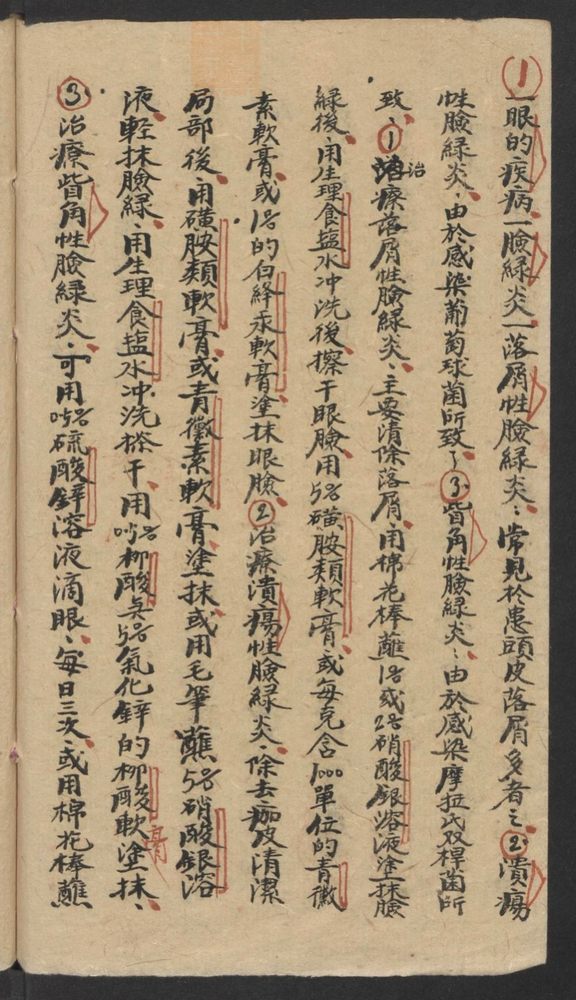 ①一眼的疾病一臉緑炎一落屑性臉緑炎：常見於患頭皮落屑多者之②潰瘍
性臉緑炎、由於感染葡萄球菌所致、③眥角性臉緑炎：由於感染摩拉氏双桿菌所
致、①治療落屑性臉緑炎、主要清除落屑、用棉花棒蘸1%或2%硝酸銀溶液塗抹臉
緑後、用生理食塩水冲洗後、擦干眼臉、用5%磺胺類軟膏、或每克含1000單位的青黴
素軟膏、或1%的白絳汞軟膏塗抹眼臉、②治療潰瘍性臉緑炎、除去痂皮清潔
局部後、用磺胺類軟膏或青黴素軟膏、塗抹或用毛筆蘸5%硝酸銀溶
液、輕抹臉緑、用生理食塩水冲洗擦干、用0.5%柳酸與5%氣化鋅的柳酸軟膏塗抹、
③治療眥角性臉緑炎、可用0.5%硫酸鋅溶液滴眼、每日三次、或用棉花棒蘸